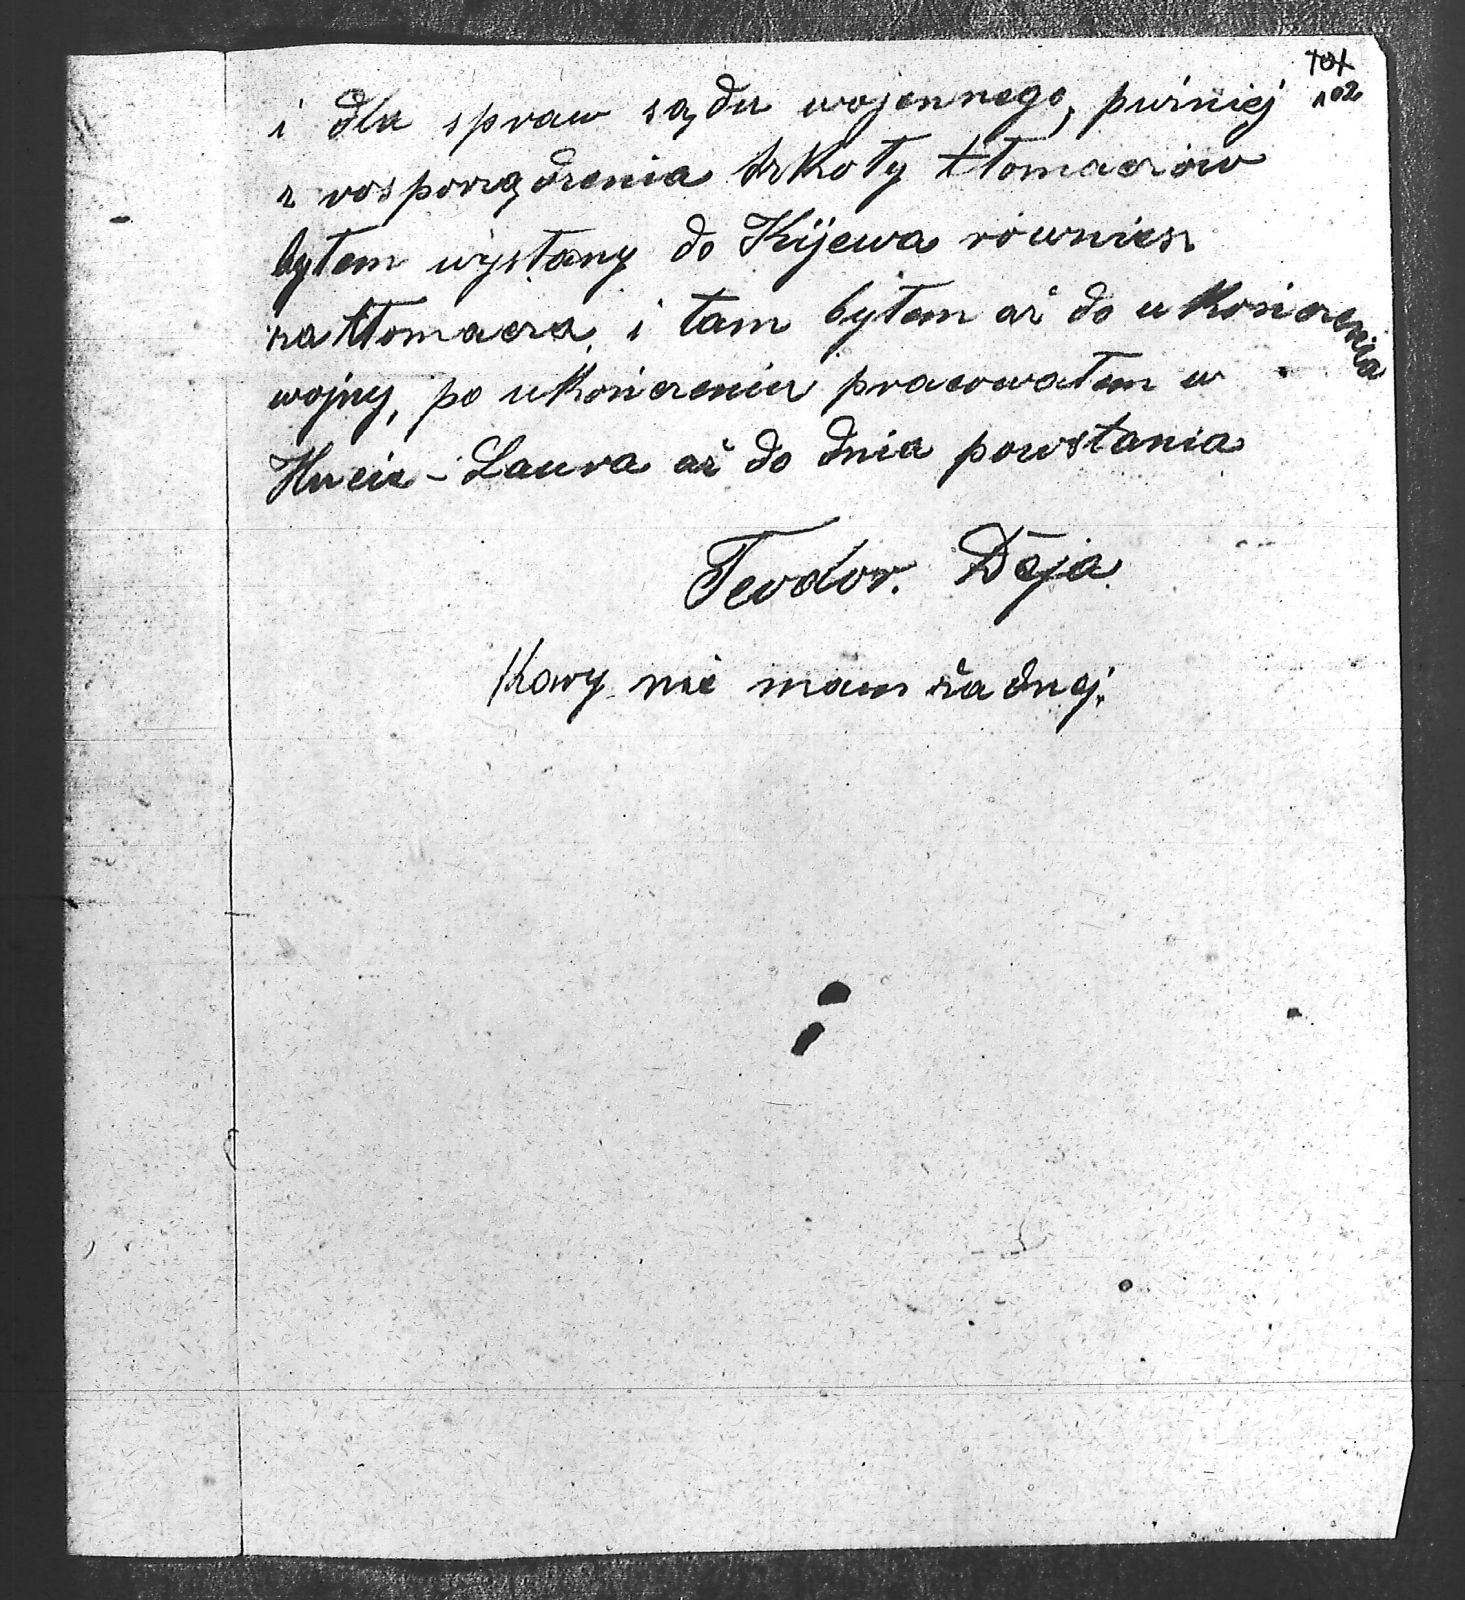 101
102
i dla spraw sądu wojennego, puźniej
z rosporządzenia szkoły tłomaczów
byłem wysłany do Kijewa równiesz
za tłomacza, i tam byłem aż do ukończenia
wojny, po ukończeniu pracowałem w
Hucie - Laura aż do dnia powstania
Teodor. Deja.
Kary nie mam żadnej.